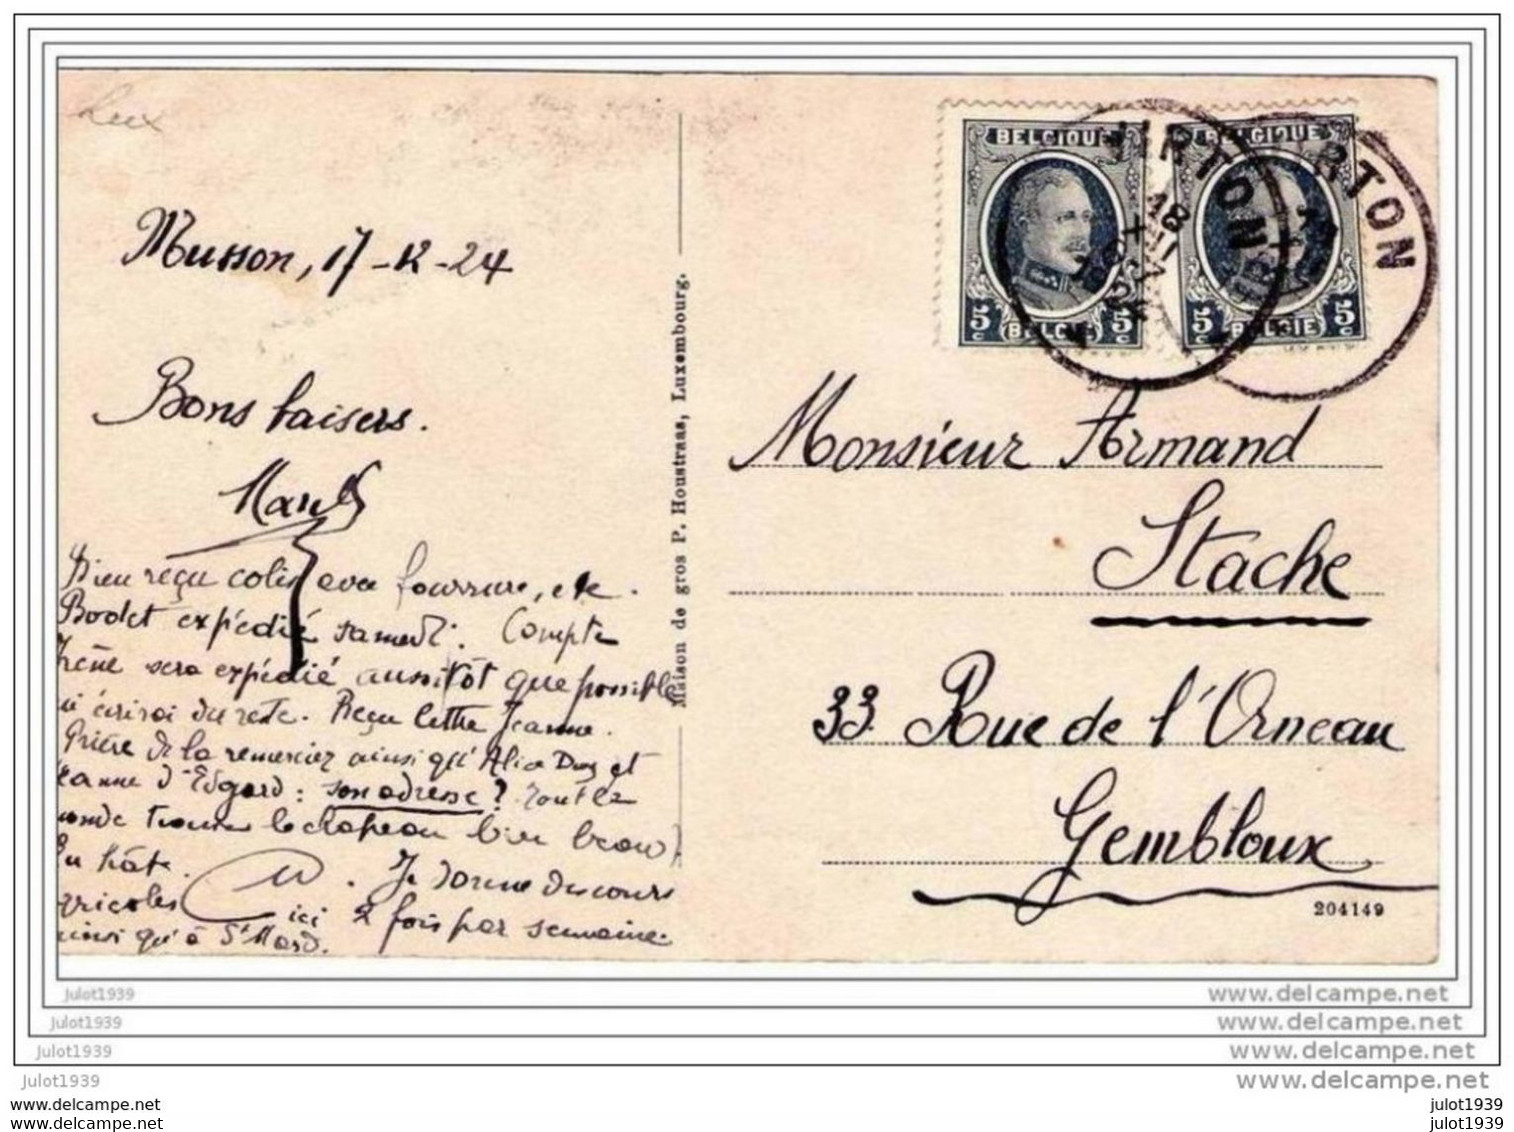 Lux
Musson, 17-12-24
Bons baisers.
Bien reçu colis avec fourrure, etc.
Bodet expédié samedi. Compte
Irène sera expédié aussitôt que possible
écrirai du reste. Reçu lettre Jeanne.
Prière de la remercier ainsi qu'Alice Duz et
Jeanne d'Edgard : son adresse ? Tout le
monde trouve le chapeau bien beau
En hâte. Je donne des cours
agricoles ici 2 fois par semaine
ainsi qu'à St Mard.
Maison de gros P. Houstraas, Luxembourg.
BELGIQUE
5c
BELGIE
5c
BELGIQUE
5c
BELGIE
5c
VIRTON
VIRTON
Monsieur Armand
Stache
33 Rue de l'Orneau
Gembloux
204149
julot1939
www.delcampe.net
julot1939
www.delcampe.net
julot1939
www.delcampe.net
julot1939
www.delcampe.net
www.delcampe.net
julot1939
www.delcampe.net
julot1939